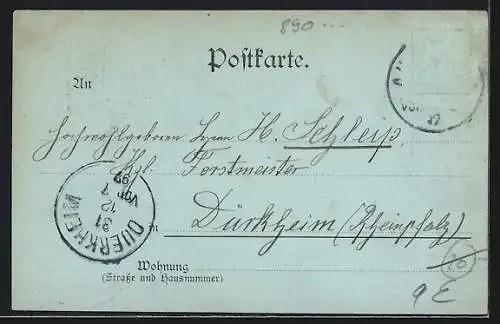 890
Postkarte.
An
Hochwohlgeboren Herrn H. Schleip
Kgl. Forstmeister
in Dürkheim (Rheinpfalz)
DUERKHEIM
31
12
7
Vor
97
Vor
97
Wohnung
(Straße und Hausnummer)
20
9 E